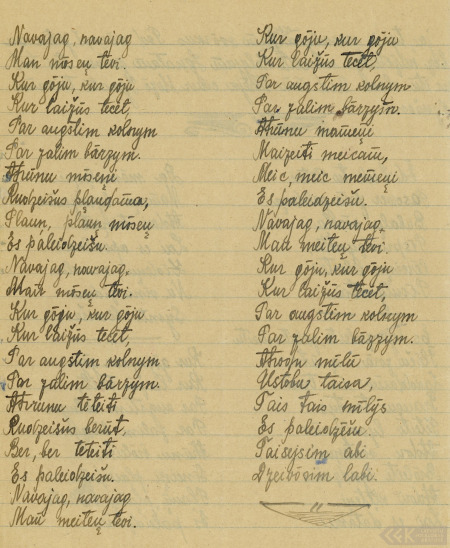 Navajag, navajag
Man mōseņ tevi.
Kur gōju, kur gōju
Kur laižūs tecēt
Par augstim kolnym
Par zalim bārzym.
Atrūnu mōseņi
Rudzeišus pļaudama,
Pļaun, pļaun mōseņ
Es paleidzeišu.
Navajag, navajag,
Man mōseņ tevi.
Kur gōju, kur gōju
Kur laižūs tecēt,
Par augstim kolnym
Par zalim bārzym.
Atrūnu teteiti
Rudzeišus berūt,
Ber, ber teteiti
Es paleidzeišu.
Navajag, navajag
Man meiteņ tevi.
Kur gōju, kur gōju
Kur laižūs tecēt,
Par augstim kolnym
Par zalim bārzym.
Atrūnu mameņi
Maizeiti meicam,
Meic, meic memeņi
Es paleidzeišu.
Navajag, navajag,
Man meiteņ tevi.
Kur gōju, kur gōju
Kur laižūs tecēt,
Par augstim kolnym
Par zalim bārzym.
Atrogu mīlū
Ustobu taisa,
Tais tais mīlys
Es paleidzēšu.
Taisejsim abi
Dzeivōsim labi.